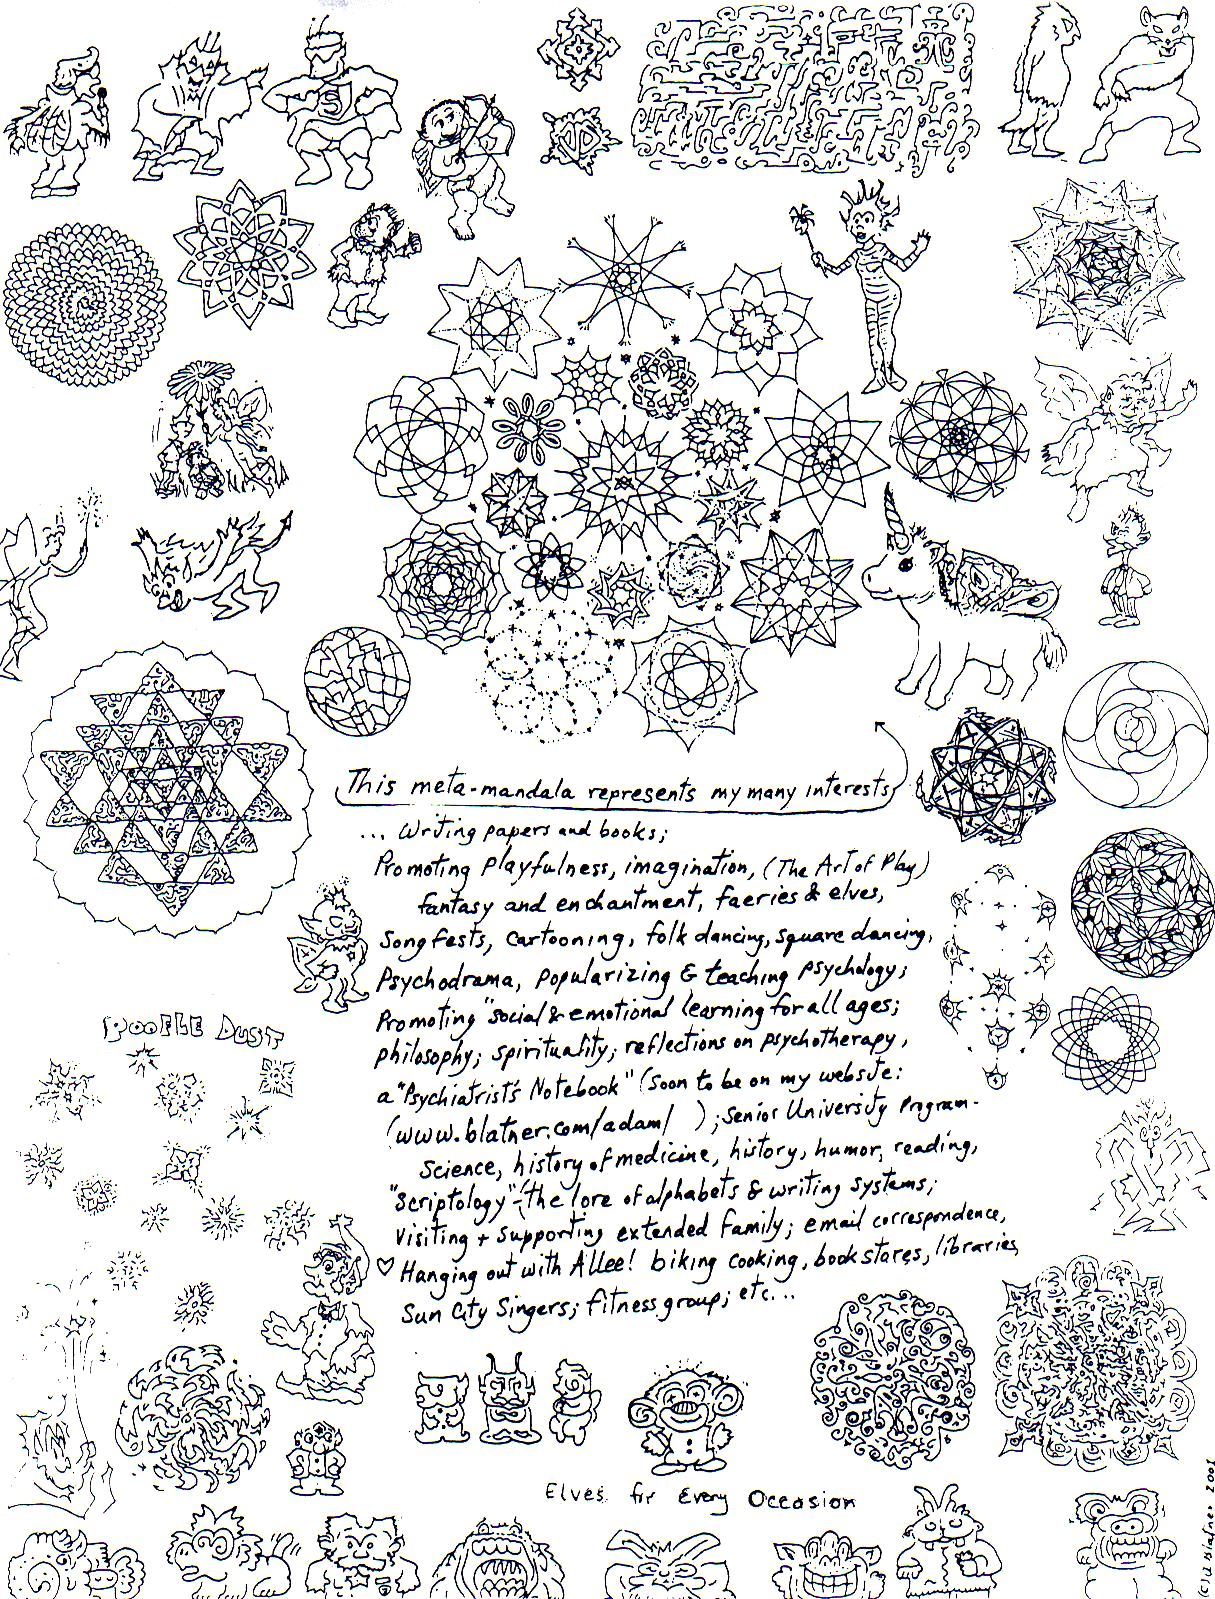 S
This meta-mandala represents my many interests
... Writing papers and books;
Promoting Playfulness, imagination, (The Art of Play)
fantasy and enchantment, faeries & elves,
Songfests, cartooning, folk dancing, square dancing,
Psychodrama, popularizing & teaching psychology;
Promoting "social & emotional learning for all ages;
philosophy; spirituality; reflections on psychotherapy,
a "Psychiatrist's Notebook" (soon to be on my website:
(www.blatner.com/adam/ ); Senior University Program-
Science, history of medicine, history, humor, reading,
"Scriptology"-(the lore of alphabets & writing systems;
Visiting + Supporting extended family; email correspondence,
♡ Hanging out with Allee! biking cooking, bookstores, libraries,
Sun City Singers; fitness group; etc...
POOFLE DUST
Elves for Every Occasion
(c) A Blatner 2001